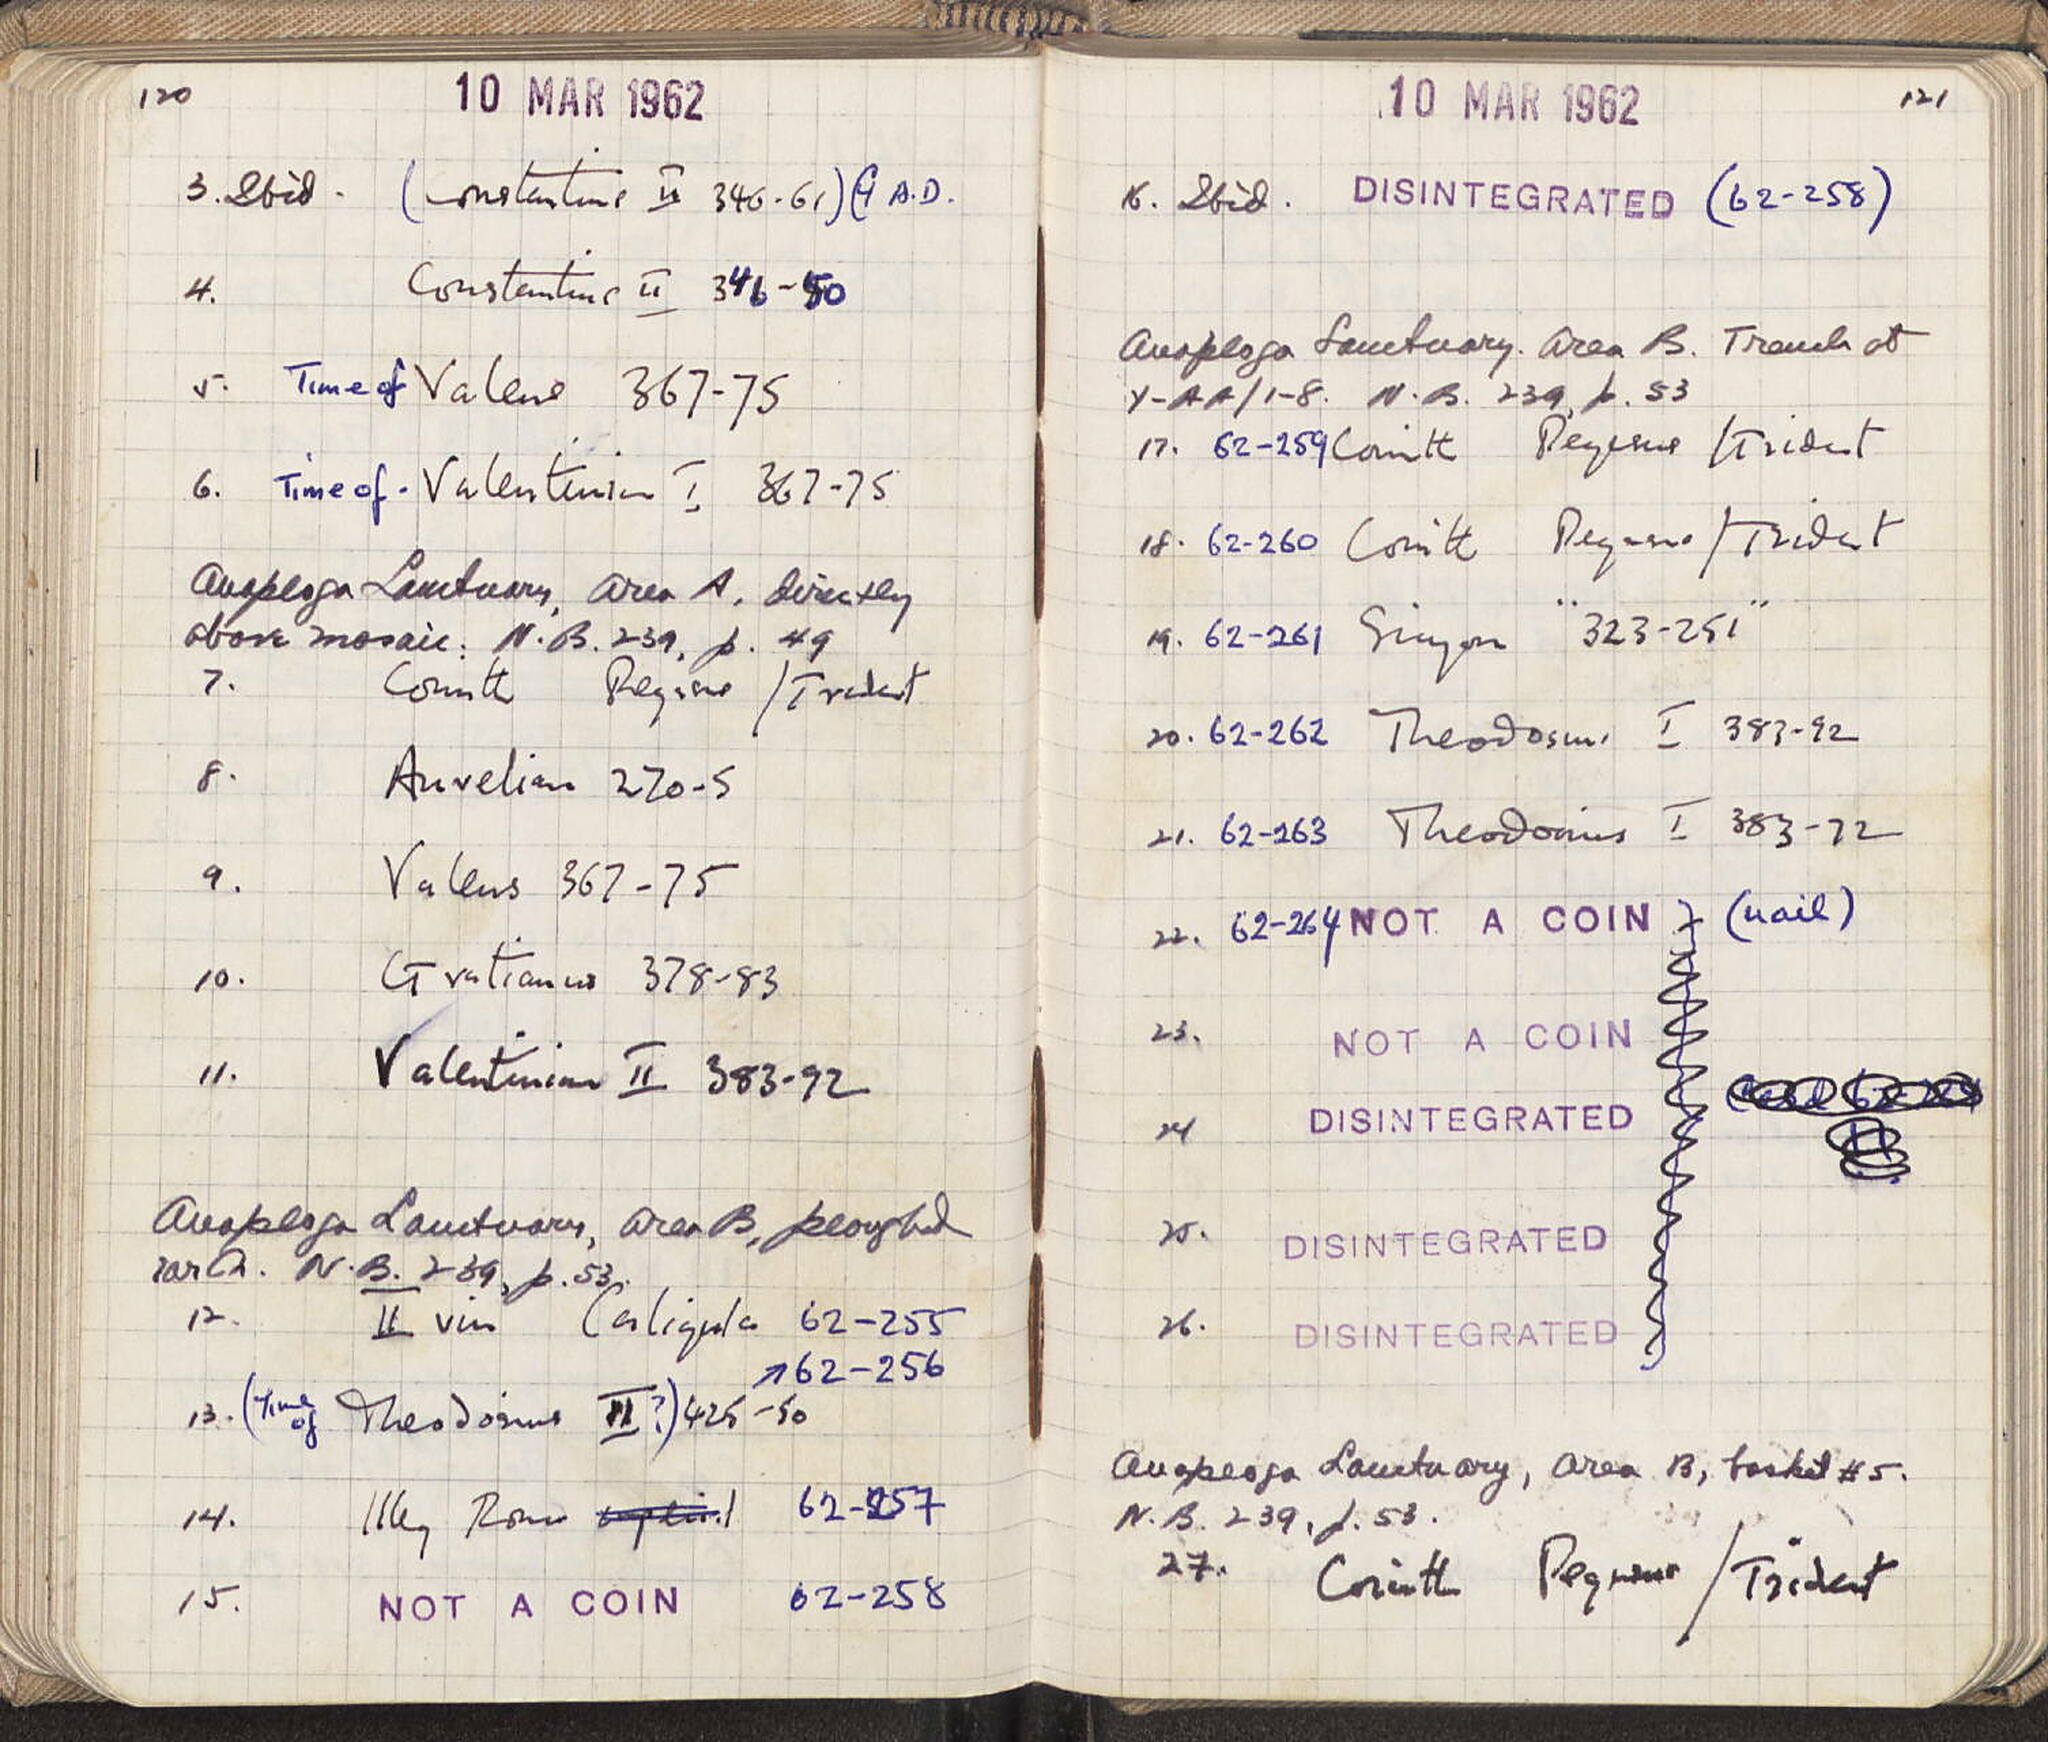 120
10 MAR 1962
3. Ibid. (Constantine II 346-61) A.D.
4. Constantine II 346-50
5. Time of Valens 367-75
6. Time of Valentinian I 367-75
Anaploga Sanctuary, Area A, directly
above mosaic. N.B. 239, p. 49
7. Corinth Pegasus / Trident
8. Aurelian 270-5
9. Valens 367-75
10. Gratianus 378-83
11. Valentinian II 383-92
Anaploga Sanctuary, Area B, ploughed
earth. N.B. 239, p. 53.
12. II vir Caligula 62-255
↗62-256
13. (Time of Theodosius II?) 425-50
14. Illeg Roman 62-257
15. NOT A COIN 62-258
121
10 MAR 1962
16. Ibid. DISINTEGRATED (62-258)
Anaploga Sanctuary. Area B. Trench at
Y-AA/1-8. N.B. 239, p. 53
17. 62-259 Corinth Pegasus / Trident
18. 62-260 Corinth Pegasus / Trident
19. 62-261 Sicyon "323-251"
20. 62-262 Theodosius I 383-92
21. 62-263 Theodosius I 383-92
22. 62-264 NOT A COIN (nail)
23. NOT A COIN
24 DISINTEGRATED
25. DISINTEGRATED
26. DISINTEGRATED
Anaploga Sanctuary, Area B, basket #5.
N.B. 239, p. 53.
27. Corinth Pegasus / Trident